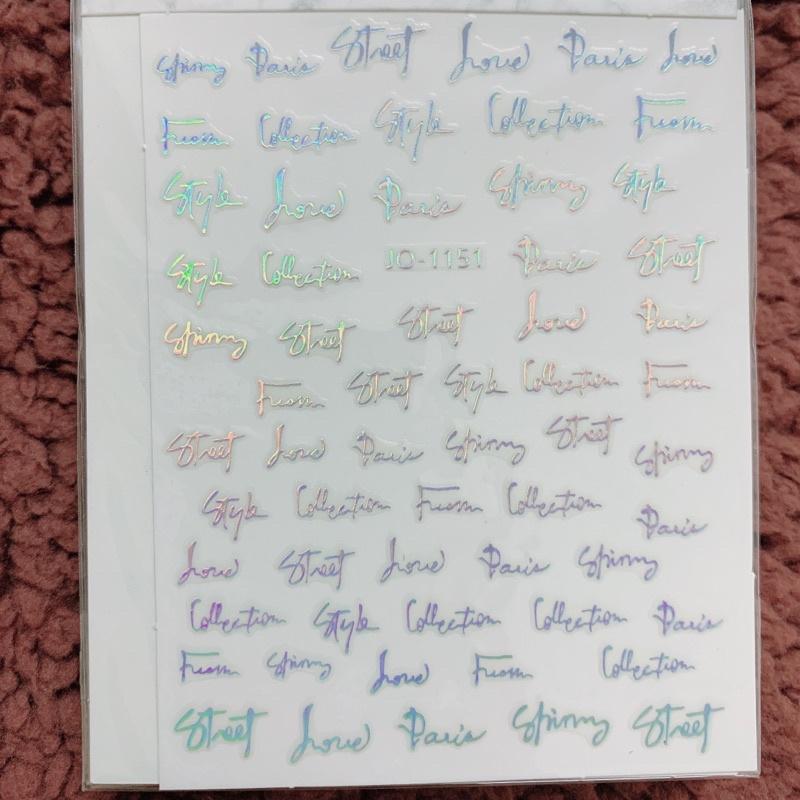 Spinny Paris Street Loued Paris Loued
Fuom Collection Style Collection Fuom
Style Loued Paris Spinny Style
Style Collection JO-1151 Paris Street
Spinny Street Street Loued Paris
Fuom Street Style Collection Fuom
Street Loued Paris Spinny Street Spinny
Style Collection Fuom Collection Paris
Loued Street Loued Paris Spinny
Collection Style Collection Collection Paris
Fuom Spinny Loued Fuom Collection
Street Loued Paris Spinny Street